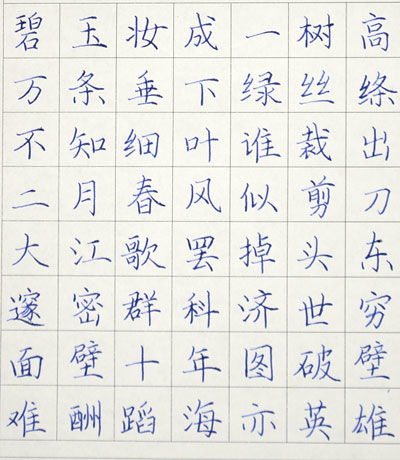 碧玉妆成一树高
万条垂下绿丝绦
不知细叶谁裁出
二月春风似剪刀
大江歌罢掉头东
邃密群科济世穷
面壁十年图破壁
难酬蹈海亦英雄